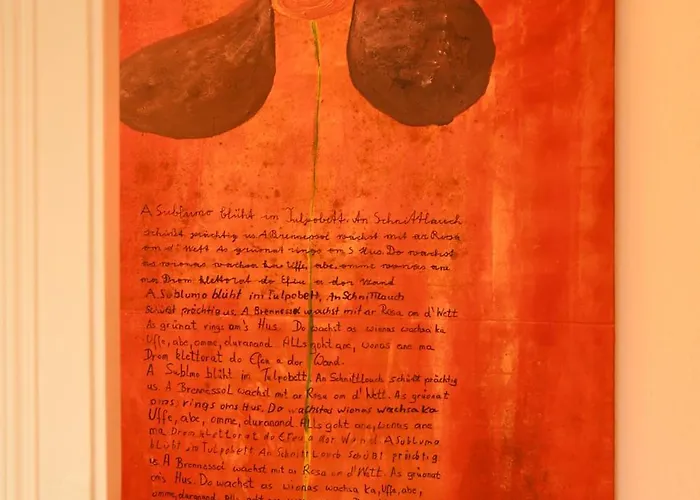 A Sublumo blüht im Tulpobett. An Schnittlauch
schüßt prächtig us. A Brennessol wachst mit ar Rosa
om d' Wett. As grüonat rings om's Hus. Do wachst
as wionas wachsa ka. Uffe, abe, omme,
ma. Drom klettorat do Efeu a dor Wand
A Sublumo blüht im Tulpobett, An Schnittlauch
schüßt prächtig us. A Brennessol wachst mit ar Rosa om d' Wett
As grünat rings om's Hus. Do wachst as wionas wachsa ka
Uffe, abe, omme, duranand. Alls goht ane, wonas ane ma
Drom klettorat do Efeu a dor Wand.
A Sublmo blüht im Tulpobett. An Schnittlouch schüßt prächtig
us. A Brennessol wachst mit ar Rosa om d' Wett. As grüonat
oms, rings oms Hus. Do wachstas wionas wachsa ka
Uffe, abe, omme, duranand Alls goht ane, wonas ane
ma Drom klettorat do Efeu a dor Wand A Sublumo
blüht im Tulpobett An Schnittlauch schüßt prächtig
us. A Brennessol wachst mit ar Rosa om d' Wett. As grüonat
om's Hus. Do wachst as wionas wachsa ka, Uffe, abe,
omme, duranand. Alls goht ane